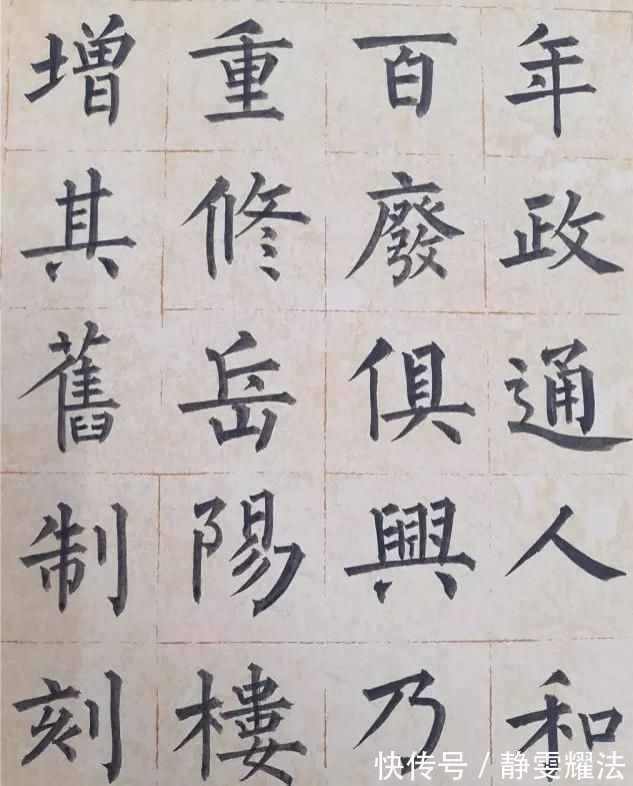 年政通人和
百廢俱興乃
重修岳陽樓
增其舊制刻
快传号 / 静雯耀法